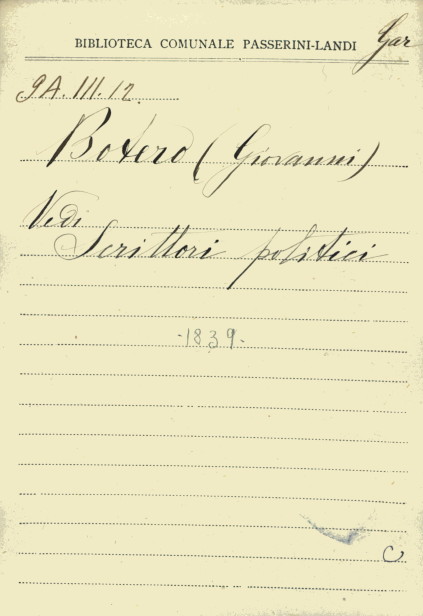 BIBLIOTECA COMUNALE PASSERINI-LANDI Gar
9A.III.12
Botero (Giovanni)
Vedi
Scrittori politici
-1839-
C